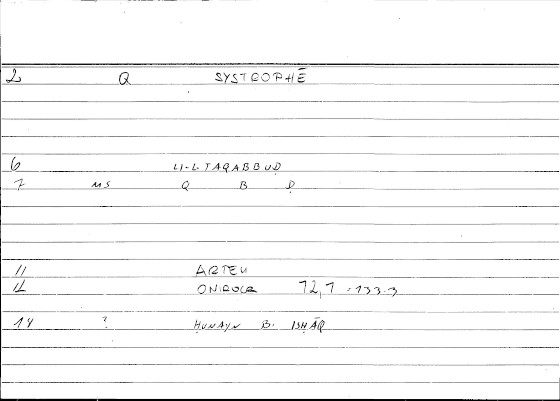 2 Q SYSTROPHĒ
6 LI-L-TAQABBUḌ
7 MS Q B Ḍ
11 ARTEM
12 ONIROCR 12,7 - 133.3
14 ? ḤUNAYN B. ISḤĀQ